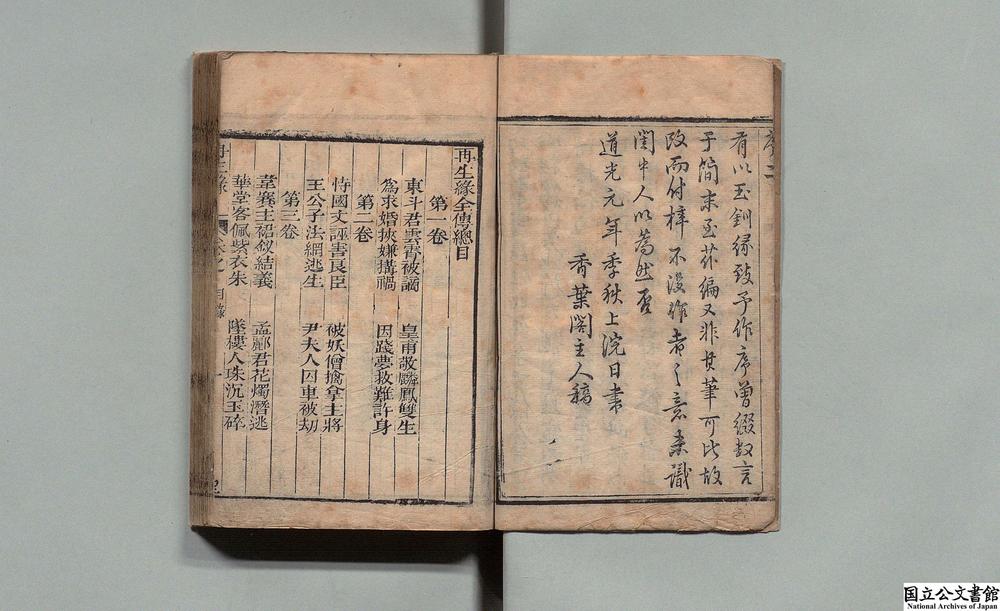 序 二
有以玉釧緣致予作序曾綴数言
于简末至茲編又非其筆可比故
改而付梓不没作者之意未識
閨中人以為然否
道光元年季秋上浣日書
香葉閣主人稿
再生緣全傳總目
第一卷
東斗君雲霄被謫 皇甫敬麟鳳雙生
為求婚挾嫌搆禍 因踐夢救難許身
第二卷
恃國丈誣害良臣 被妖僧擒拿主將
王公子法網逃生 尹夫人囚車被劫
第三卷
韋冀主裙釵結義 孟酈君花燭潛逃
華堂客佩紫衣朱 墜樓人珠沉玉碎
再生緣 卷之一 目錄 一
国立公文書館
National Archives of Japan